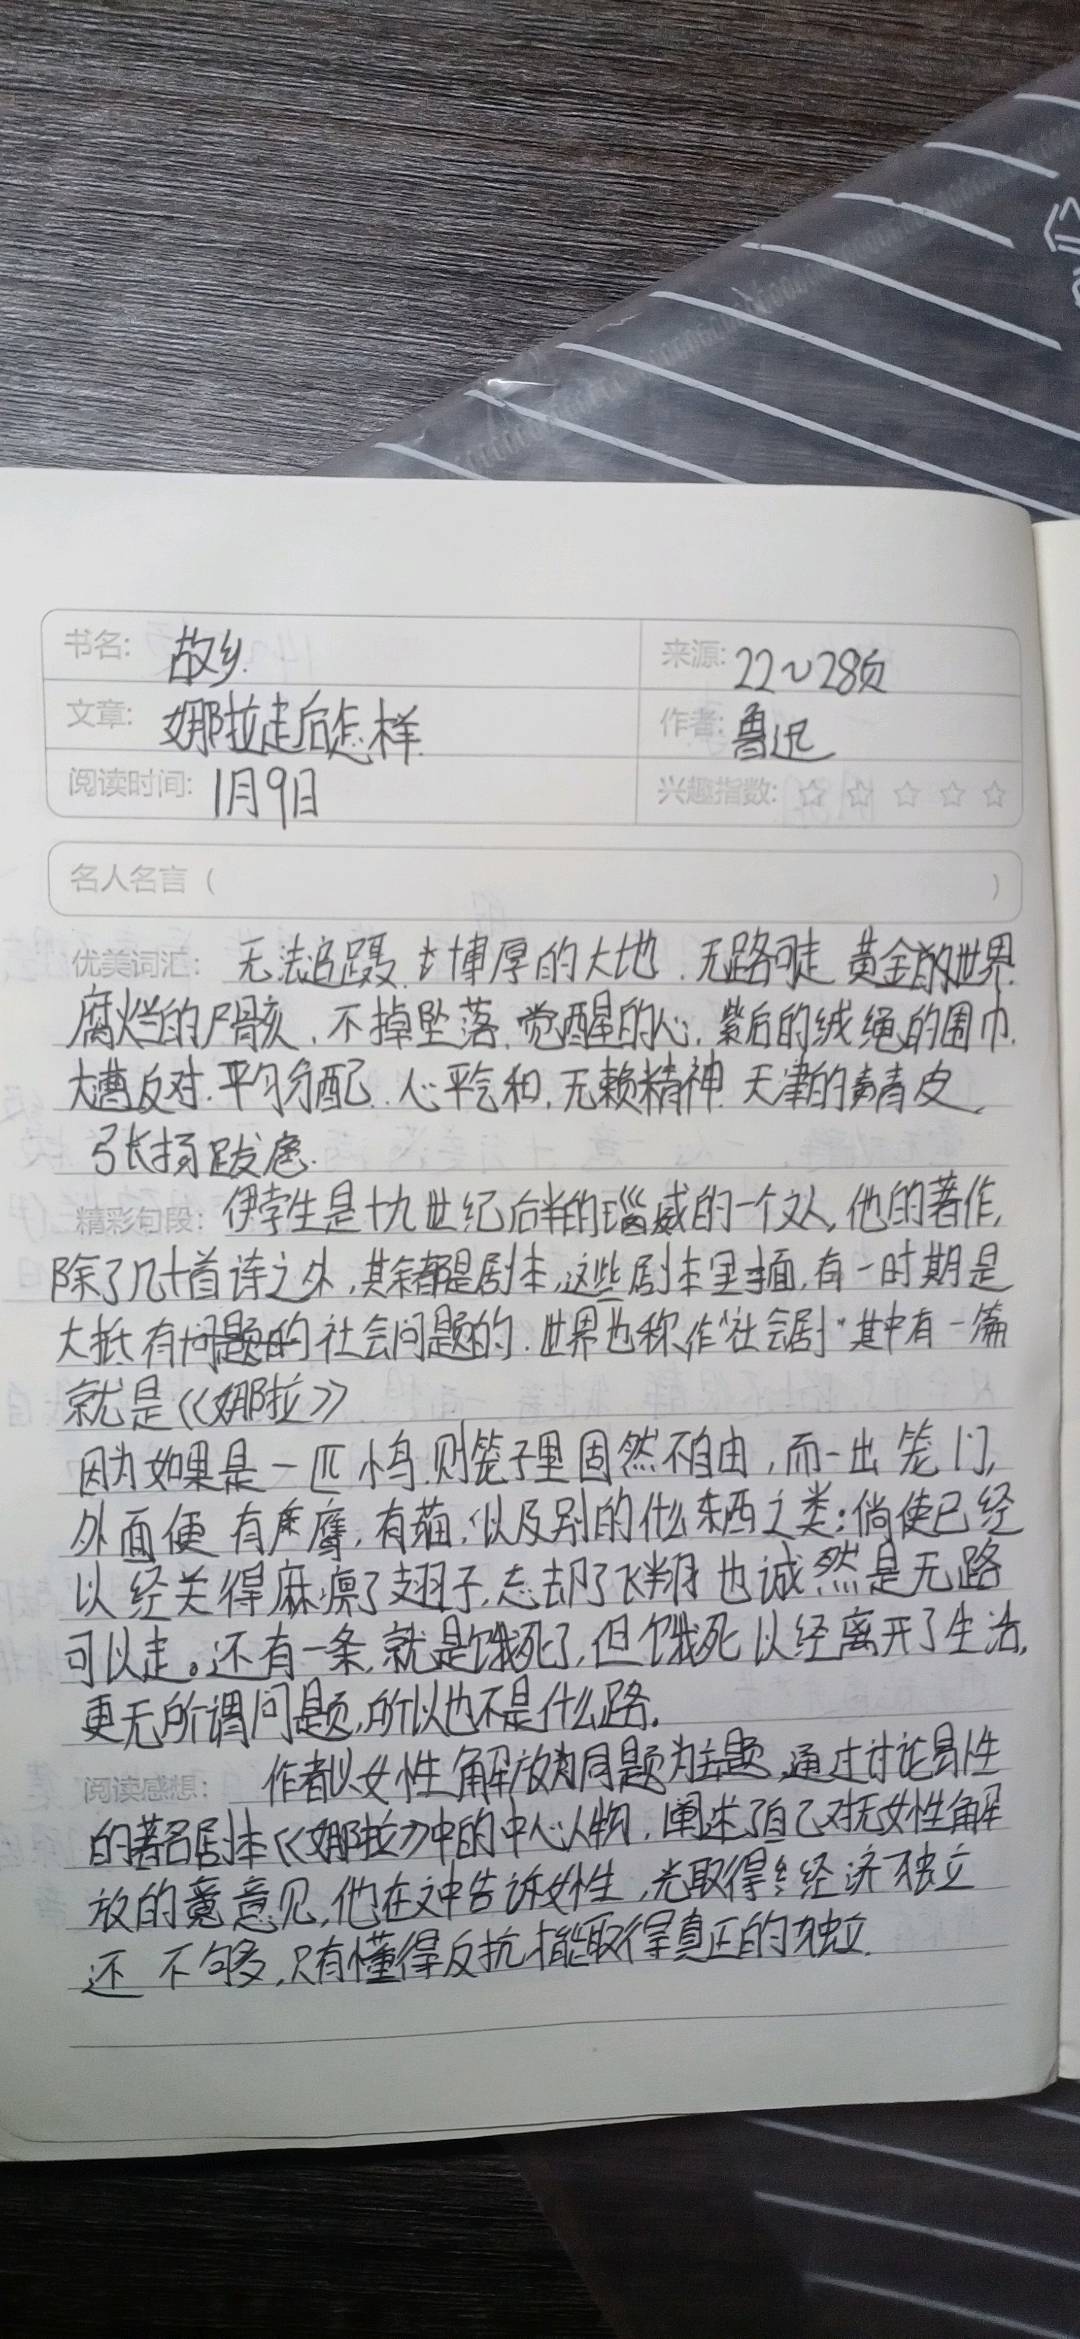 书名: 故乡. 来源: 22~28页
文章: 娜拉走后怎样. 作者: 鲁迅
阅读时间: 1月9日 兴趣指数: ☆ ☆ ☆ ☆ ☆
名人名言 ( )
优美词汇: 无法追蹑. 博厚的大地. 无路可走 黄金的世界.
腐烂的尸骸, 不掉坠落. 觉醒的心, 紫后的绒绳的围巾.
大遭反对. 平均分配. 心平气和, 无赖精神. 天津的青皮,
张扬跋扈.
精彩句段: 伊孛生是十九世纪后半的瑙威的一个文人, 他的著作,
除了几十首诗之外, 其余都是剧本, 这些剧本里面, 有一时期是
大抵有问题的社会问题的. 世界也称作"社会剧" 其中有一篇
就是《娜拉》
因为如果是一匹小鸟. 则笼子里固然不自由, 而一出笼门,
外面便有鹰, 有猫, 以及别的什么东西之类; 倘使已经
以经关得麻痹了翅子, 忘却了飞翔 也诚然是无路
可以走。还有一条, 就是饿死了, 但饿死以经离开了生活,
更无所谓问题, 所以也不是什么路.
阅读感想: 作者以女性解放问题为主题, 通过讨论易性
的著名剧本《娜拉》中的中心人物, 阐述了自己对女性解
放的意见, 他在文中告诉女性, 光取得经济独立
还不够, 只有懂得反抗才能取得真正的独立.